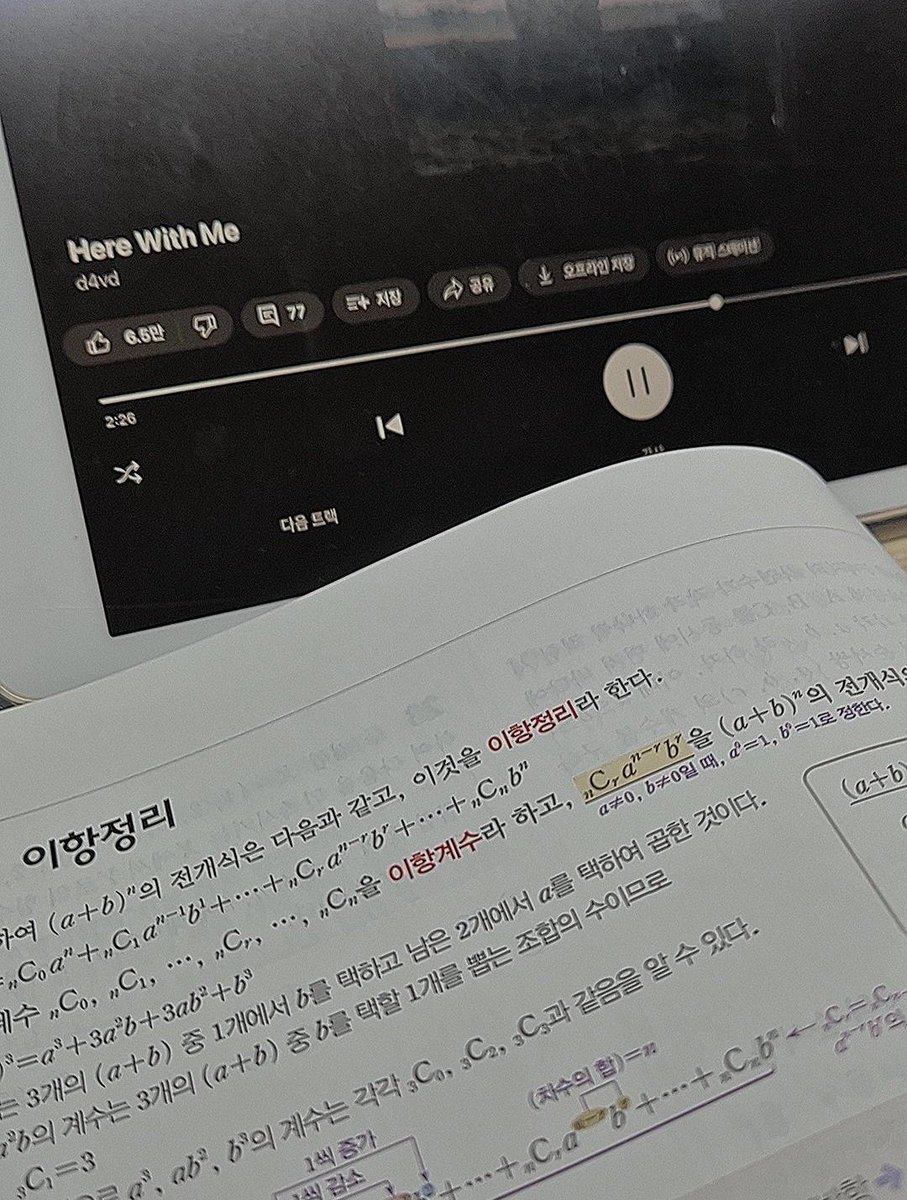 Here With Me
d4vd
6.5만
77
저장
공유
오프라인 저장
뮤직 스테이션
2:26
다음 트랙
이항정리
하여 (a+b)ⁿ의 전개식은 다음과 같고, 이것을 이항정리라 한다.
=ₙC₀aⁿ+ₙC₁aⁿ⁻¹b¹+⋯+ₙCᵣaⁿ⁻ʳbʳ+⋯+ₙCₙbⁿ
계수 ₙC₀, ₙC₁, ⋯, ₙCᵣ, ⋯, ₙCₙ을 이항계수라 하고, ₙCᵣaⁿ⁻ʳbʳ을 (a+b)ⁿ의 전개식의
a≠0, b≠0일 때, a⁰=1, b⁰=1로 정한다.
)³=a³+3a²b+3ab²+b³
는 3개의 (a+b) 중 1개에서 b를 택하고 남은 2개에서 a를 택하여 곱한 것이다.
a²b의 계수는 3개의 (a+b) 중 b를 택할 1개를 뽑는 조합의 수이므로
₃C₁=3
으로 a³, ab², b³의 계수는 각각 ₃C₀, ₃C₂, ₃C₃과 같음을 알 수 있다.
(a+b)
(차수의 합)=n
1씩 증가
1씩 감소
+⋯+ₙCᵣaⁿ⁻ʳbʳ+⋯+ₙCₙbⁿ